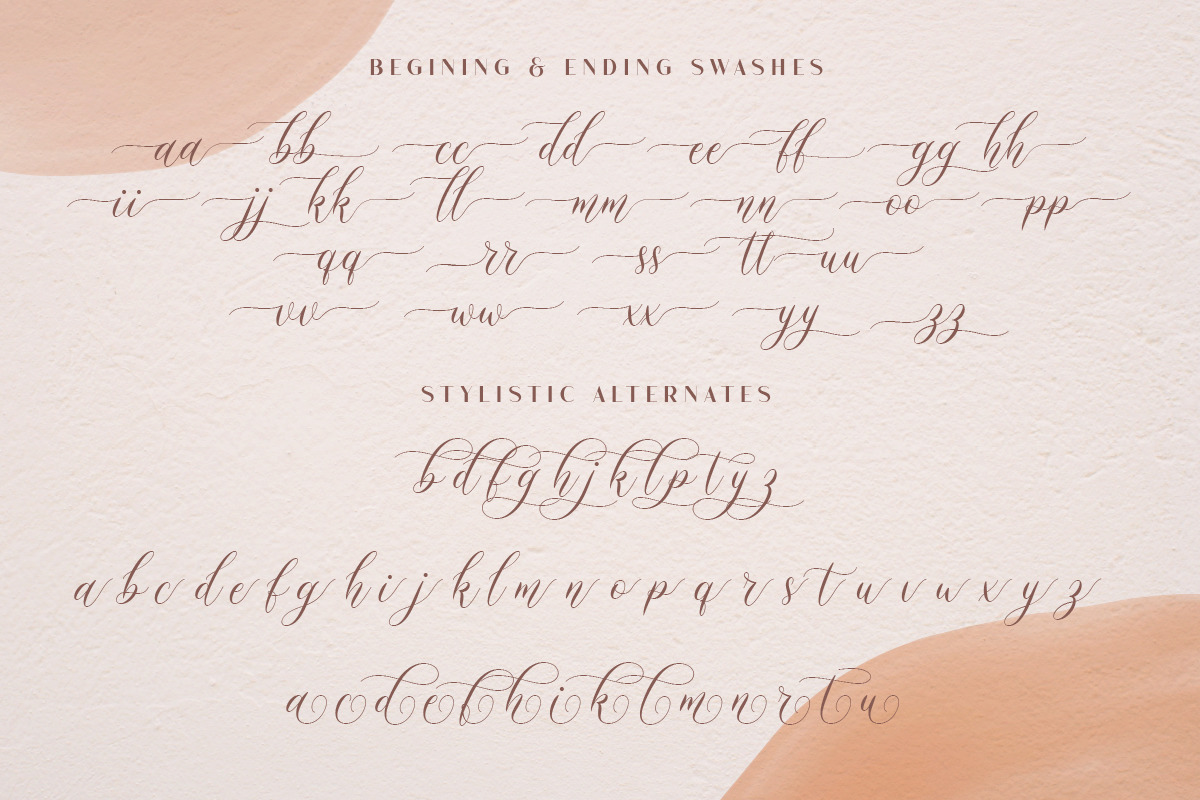 BEGINING & ENDING SWASHES
aa bb cc dd ee ff gg hh
ii jj kk ll mm nn oo pp
qq rr ss tt uu
vv ww xx yy zz
STYLISTIC ALTERNATES
b d f g h j k l p t y z
a b c d e f g h i j k l m n o p q r s t u v w x y z
a c d e f h i k l m n r t u